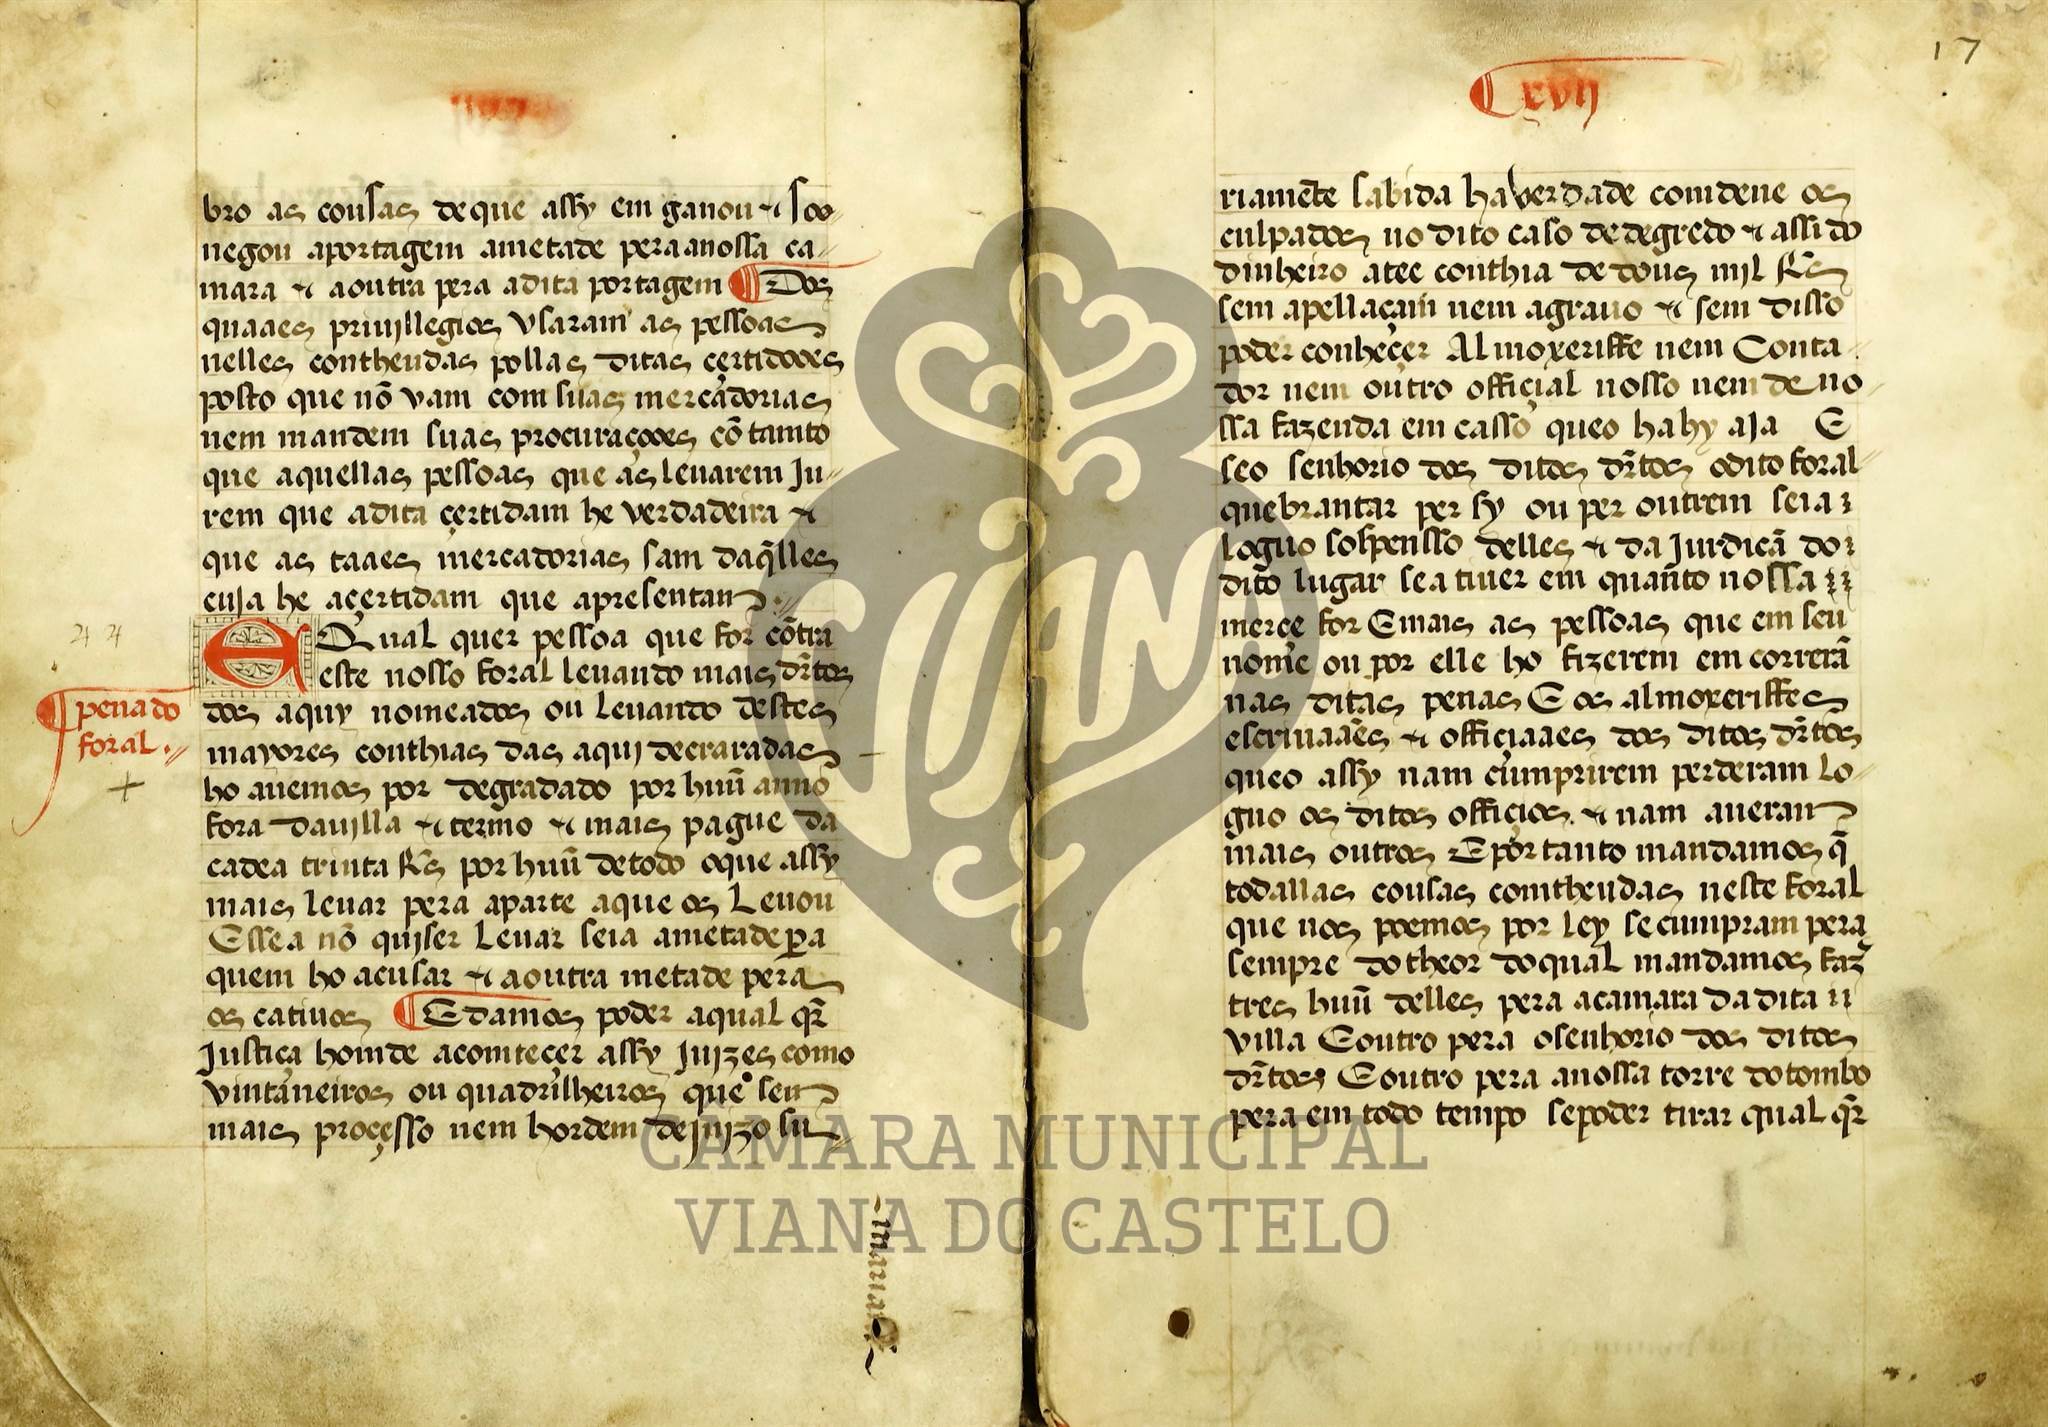 bro as cousas deque assy em ganou ⁊ soo
negou aportagem ametade pera anossa ca
mara ⁊ aoutra pera adita portagem ¶ Dos
quaaes priuijllegios vsaram as pessoas
nelles contheudas pollas ditas çertidooes
posto que nõ vam com suas mercadorias
nem mandem suas procuraçooes cõ tamto
que aquellas pessoas que as leuarem Ju
rem que adita çertidam he verdadeira ⁊
que as taaes mercadorias sam daq̃lles
cuja he açertidam que apresentam
E Qual quer pessoa que for cõtra
este nosso foral leuando mais dr̃tos
pena do
foral
dos aquy nomeados ou leuando destes
mayores conthias das aqui decraradas
ho auemos por degradado por huũ anno
fora da villa ⁊ termo ⁊ mais pague da
cadea trinta Rs̃ por huũ de todo oque assy
mais leuar pera aparte aque os Leuou
Essea nõ quiser Leuar seia ametade pera
quem ho acusar ⁊ aoutra metade pera
os catiuos ¶ E damos poder aqual q̃r
Justiça homde acomteçer assy Juizes como
vintaneiros ou quadrilheiros que sem
mais proçesso nem hordem de juizo su
17
¶ xvij
riamẽte sabida ha verdade comdene os
culpados no dito caso de degredo ⁊ assi do
dinheiro atee conthia de dous mjl Rs̃
sem apellaçam nem agrauo ⁊ sem disso
poder conheçer Almoxeriffe nem Conta
dor nem outro offiçial nosso nem de no
ssa fazenda em casso queo hahy aja E
seo senhorio dos ditos dr̃tos odito foral
quebrantar per sy ou per outrem seia
loguo sospensso delles ⁊ da jurdiçã do
dito lugar se a tiuer em quanto nossa
merçe for E mais as pessoas que em seu
nome ou por elle ho fizerem em correrã
nas ditas penas E os almoxeriffes
escriuaães ⁊ officiaaes dos ditos dr̃tos
queo assy nam cumprirem perderam lo
guo os ditos officios ⁊ nam aueram
mais outros E por tanto mandamos q̃
todallas cousas comtheudas neste foral
que nos poemos por ley se cumpram pera
sempre do theor do qual mandamos faz̃
tres huũ delles pera acamara da dita
villa E outro pera osenhorio dos ditos
dr̃tos E outro pera anossa torre do tombo
pera em todo tempo se poder tirar qual q̃r
VIANA
CÂMARA MUNICIPAL
VIANA DO CASTELO